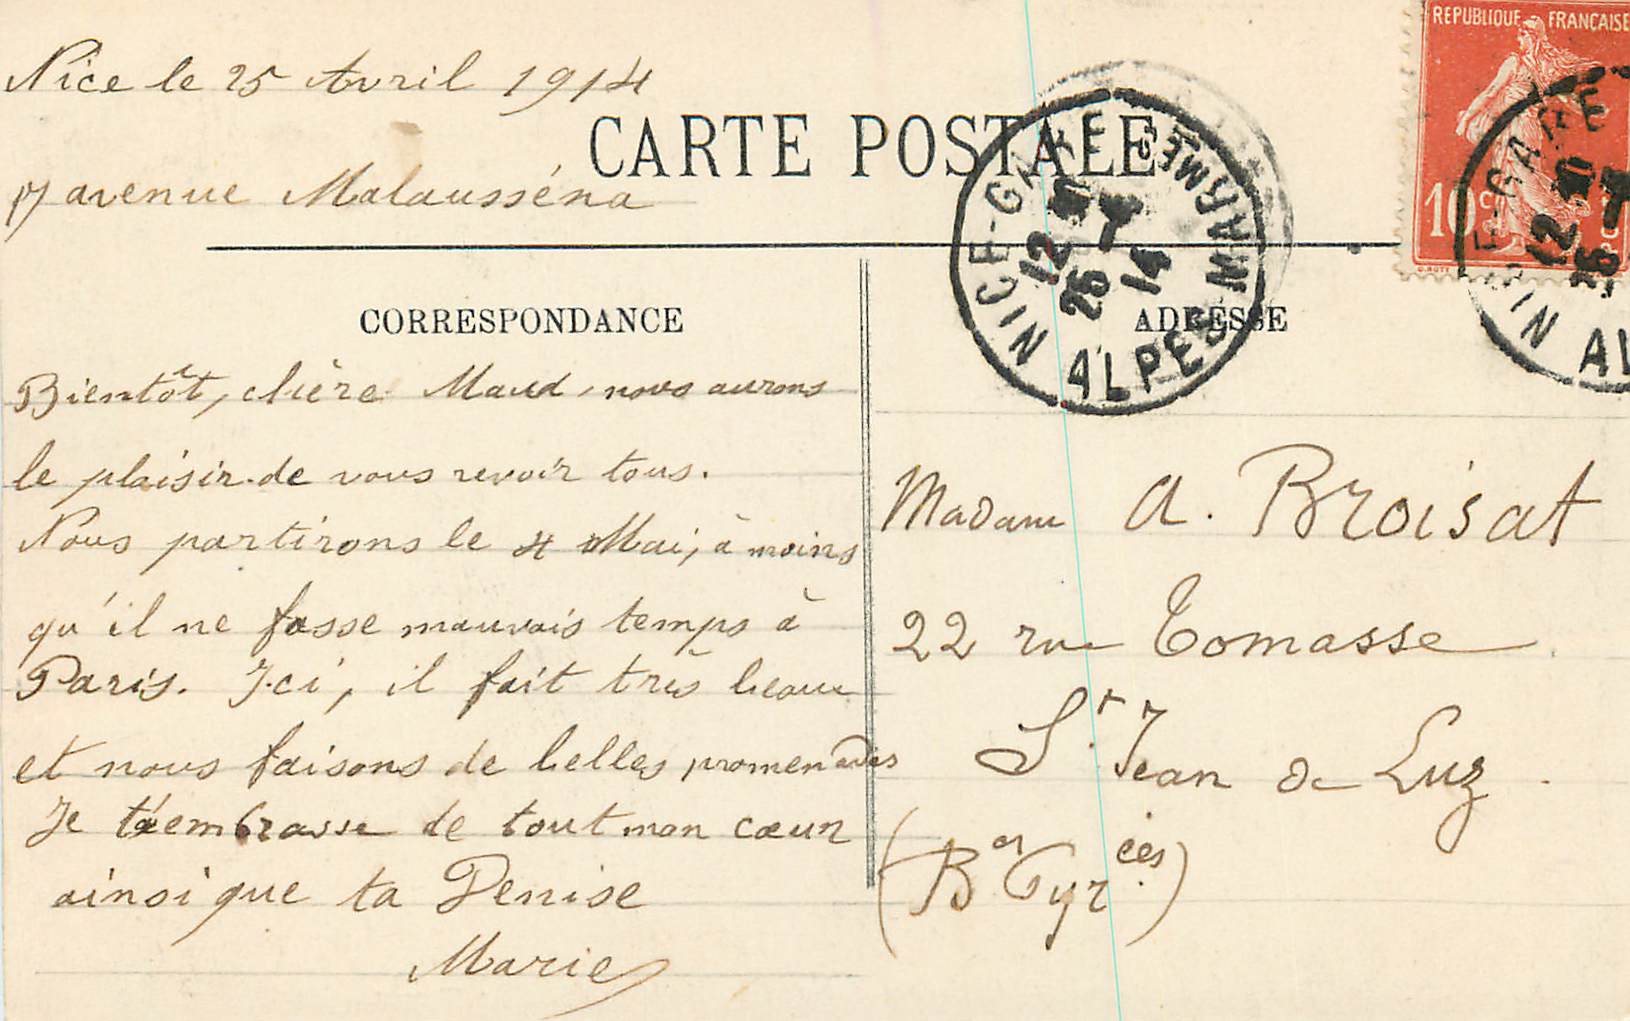 Nice le 25 Avril 1914
17 avenue Malausséna
CARTE POSTALE
CORRESPONDANCE
Bientôt, chère Maud, nous aurons
le plaisir de vous revoir tous.
Nous partirons le 4 Mai, à moins
qu'il ne fasse mauvais temps à
Paris. Ici, il fait très beau
et nous faisons de belles promenades
Je t'embrasse de tout mon cœur
ainsi que ta Denise
Marie
REPUBLIQUE FRANÇAISE
10 c
NICE-GARE
12
26 - 4
14
ALPES MARMES
NICE-GARE
12
26
AL
ADRESSE
Madame A. Broisat
22 rue Tomasse
St Jean de Luz
(Bes Pyrées)